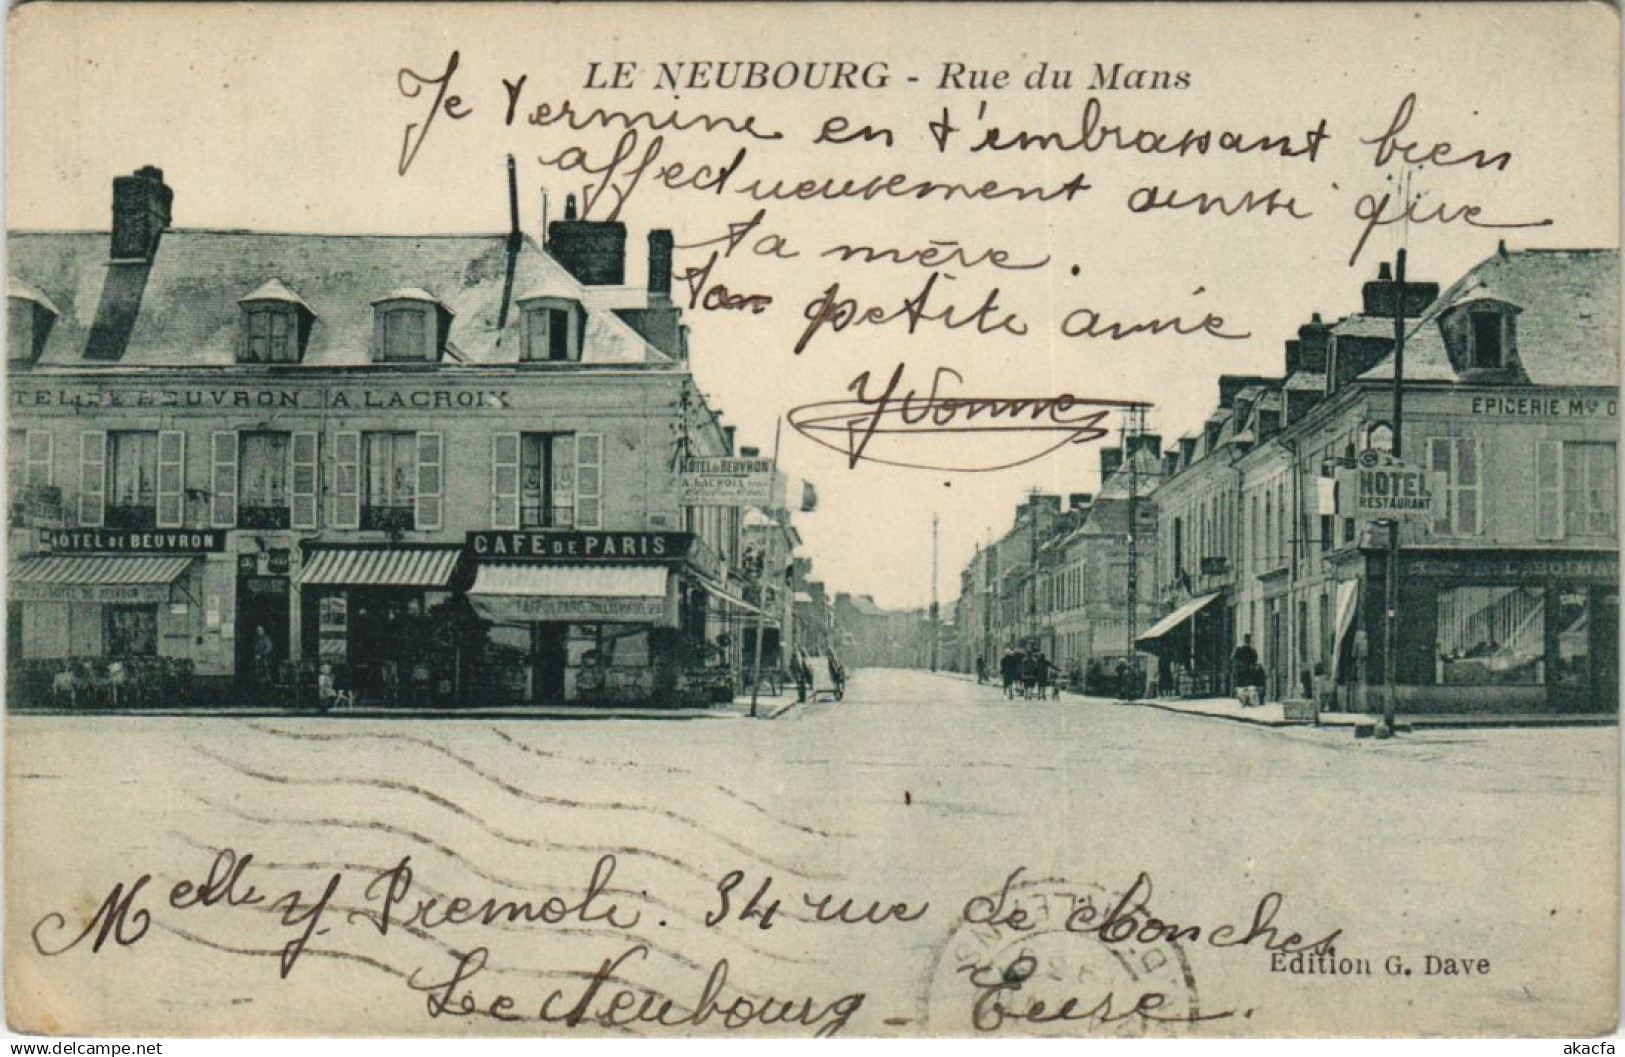 LE NEUBOURG - Rue du Mans
Je termine en t'embrassant bien
affectueusement ainsi que
ta mère.
ton petite amie
Yvonne
TEL DE BEUVRON A. LACROIX
HOTEL DE BEUVRON
A. LACROIX
HOTEL DE BEUVRON
CAFE DE PARIS
CAFE DE PARIS
EPICERIE
HOTEL
RESTAURANT
Melle Y. Premoli. 34 rue de Conches
Le Neubourg - Eure.
Edition G. Dave
akacfa
akacfa.com